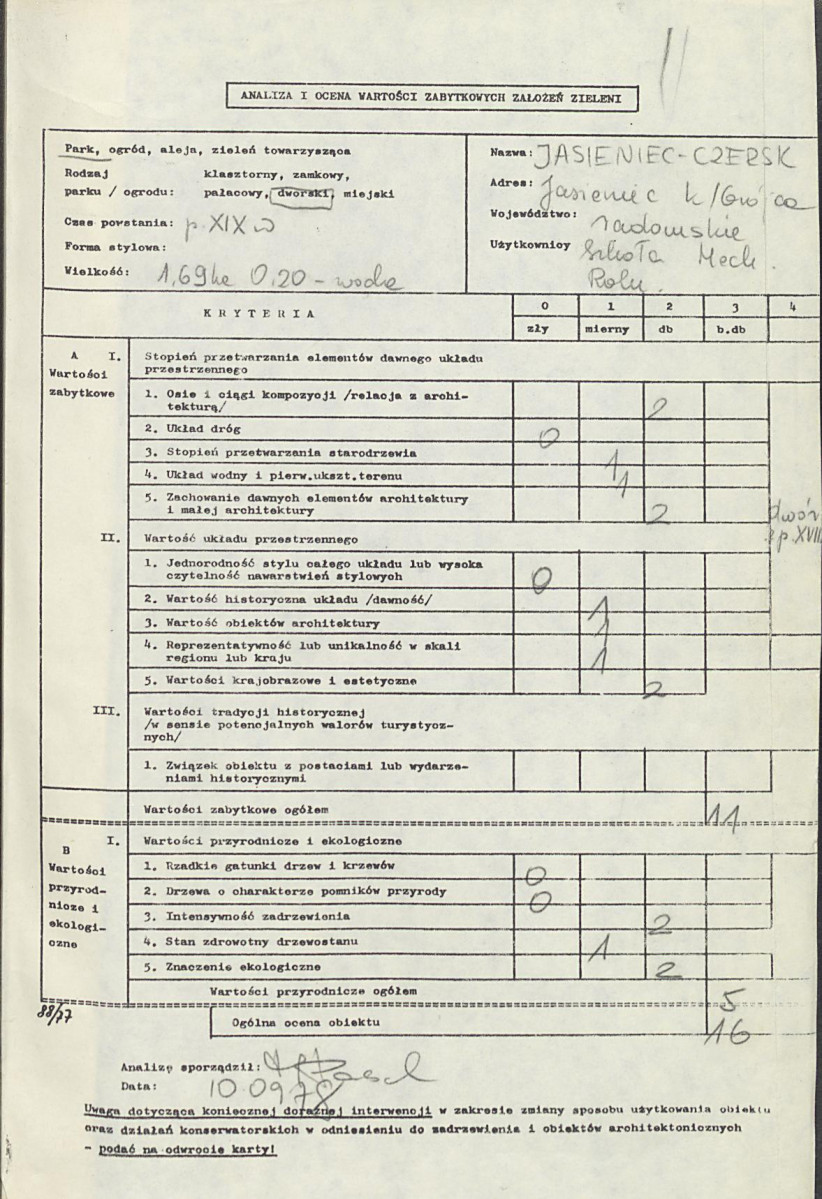 11
ANALIZA I OCENA WARTOŚCI ZABYTKOWYCH ZAŁOŻEŃ ZIELENI
Park, ogród, aleja, zieleń towarzysząca
Rodzaj klasztorny, zamkowy,
parku / ogrodu: pałacowy, dworski, miejski
Czas powstania: p XIX w
Forma stylowa:
Wielkość: 1,69 ha 0,20 - woda
Nazwa: JASIENIEC-CZERSK
Adres: Jasieniec k/Grójca
Województwo: radomskie
Użytkownicy Szkoła Mech.
Roln.
KRYTERIA 0 1 2 3 4
zły mierny db b.db
A I. Stopień przetwarzania elementów dawnego układu
Wartości przestrzennego
zabytkowe 1. Osie i ciągi kompozycji /relacja z archi-
tekturą/ 2
2. Układ dróg 0
3. Stopień przetwarzania starodrzewia 1
4. Układ wodny i pierw.ukszt.terenu 1
5. Zachowanie dawnych elementów architektury
i małej architektury 2 dwór
p. XVIII
II. Wartość układu przestrzennego
1. Jednorodność stylu całego układu lub wysoka
czytelność nawarstwień stylowych 0
2. Wartość historyczna układu /dawność/ 1
3. Wartość obiektów architektury 1
4. Reprezentatywność lub unikalność w skali
regionu lub kraju 1
5. Wartości krajobrazowe i estetyczne 2
III. Wartości tradycji historycznej
/w sensie potencjalnych walorów turystycz-
nych/
1. Związek obiektu z postaciami lub wydarze-
niami historycznymi
Wartości zabytkowe ogółem 11
B I. Wartości przyrodnicze i ekologiczne
Wartości 1. Rzadkie gatunki drzew i krzewów 0
przyrod- 2. Drzewa o charakterze pomników przyrody 0
nicze i 3. Intensywność zadrzewienia 2
ekologi-
czne 4. Stan zdrowotny drzewostanu 1
5. Znaczenie ekologiczne 2
Wartości przyrodnicze ogółem 5
88/77 Ogólna ocena obiektu 16
Analizę sporządził:
Data: 10 09 78
Uwaga dotycząca koniecznej doraźnej interwencji w zakresie zmiany sposobu użytkowania obiektu
oraz działań konserwatorskich w odniesieniu do zadrzewienia i obiektów architektonicznych
- podać na odwrocie karty!